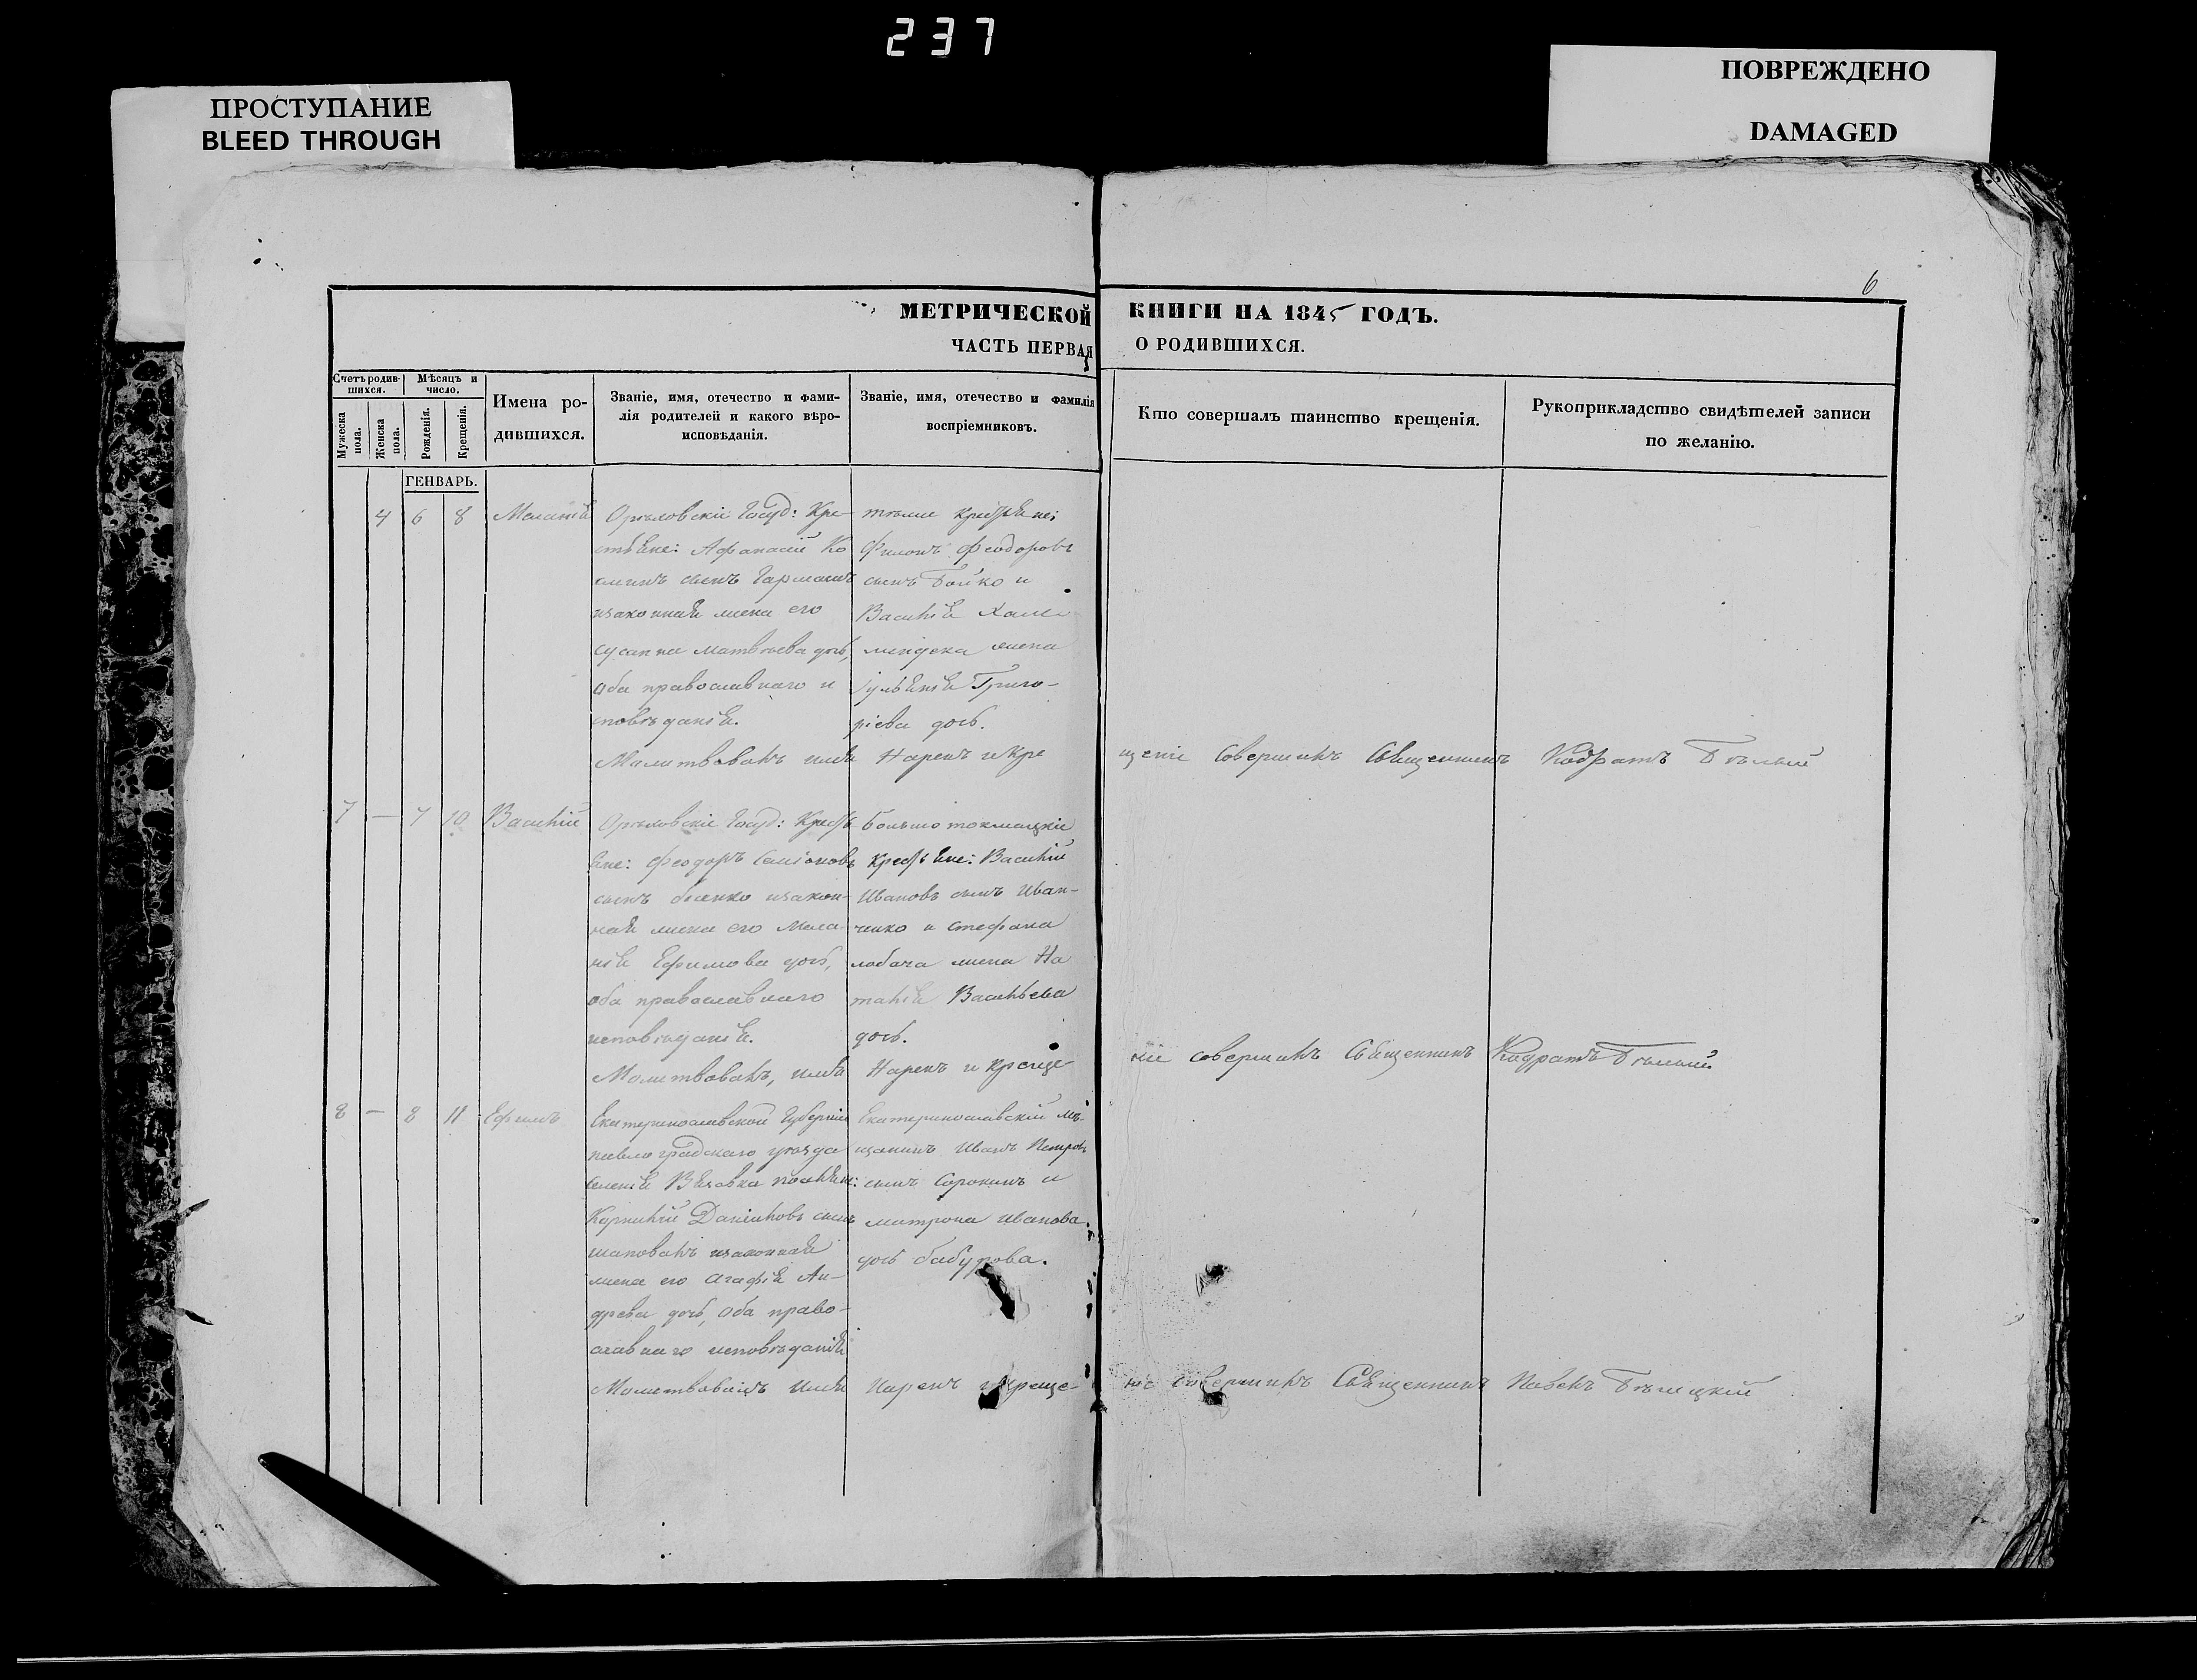 237
ПРОСТУПАНИЕ
BLEED THROUGH
ПОВРЕЖДЕНО
DAMAGED
6
МЕТРИЧЕСКОЙ КНИГИ НА 1845 ГОДЪ.
ЧАСТЬ ПЕРВАЯ О РОДИВШИХСЯ.
Счетъ родив-
шихся.
Мужеска
пола.
Женска
пола.
Мѣсяцъ и
число.
Рожденія.
Крещенія.
Имена ро-
дившихся.
Званіе, имя, отечество и фами-
лія родителей и какого вѣро-
исповѣданія.
Званіе, имя, отечество и фамилія
воспріемниковъ.
Кто совершалъ таинство крещенія.
Рукоприкладство свидѣтелей записи
по желанію.
ГЕНВАРЬ.
4 6 8
Меланія
Орѣловскіе Госуд: Кре-
стьяне: Афанасій Ко
сынъ
изаконная жена его
Сусанна Матвѣева дочь,
оба православнаго и
сповѣданія.
тѣже крестьяне:
Филонъ Феодоровъ
сынъ Бойко и
Василія
жена
Іуліянія Григо-
ріева дочь.
Молитвовалъ, имя Нарекъ и Кре
щеніе Совершилъ Священникъ Кодратъ Бѣлый
7 — 7 10
Василій
Орѣловскіе Госуд: Кресть
яне: Феодоръ Симіоновъ
сынъ изакон-
ная жена его Мела
нія Ефимова дочь,
оба православнаго
исповѣданія.
Большетокмацкіе
крестьяне: Василій
Ивановъ сынъ Иван-
ченко и Стефана
лобача жена На
талія Васильева
дочь.
Молитвовалъ, имя Нарекъ и Креще
ніе совершилъ Священникъ Кодратъ Бѣлый
8 — 8 11
Ефимъ
Екатеринославской Губерніи
павлоградскаго уѣзда
селенія Вязовка
Корнилій Даніиловъ сынъ
шаповалъ изаконная
жена его Агафія Ан-
дреева дочь, оба право-
славнаго исповѣданія
Екатеринославскій мѣ-
щанинъ Иванъ Петровъ
сынъ Сорокинъ и
матрона Иванова
дочь бабурова.
Молитвовалъ имя Нарекъ и Креще-
ніе совершилъ Священникъ Павелъ Бѣлицкій